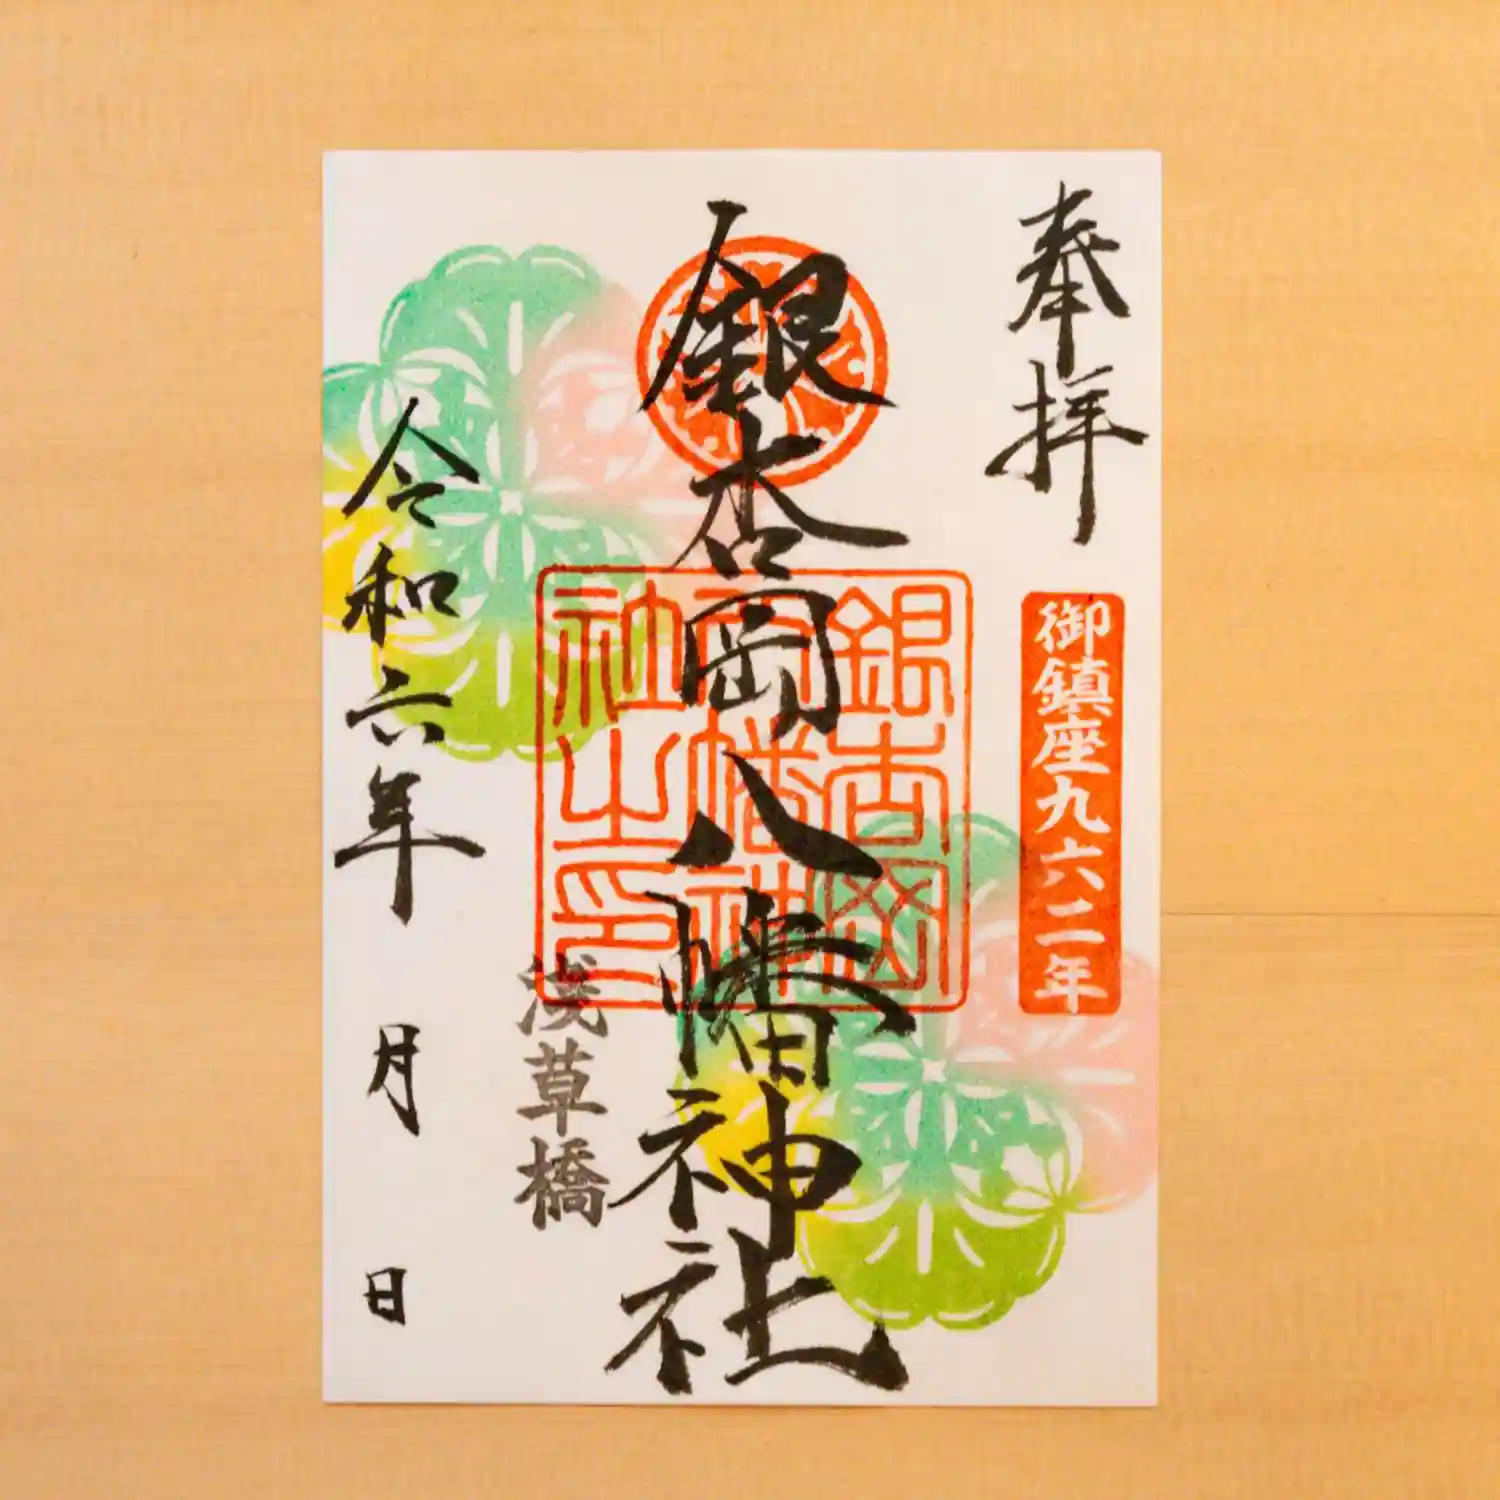 奉拝
御鎮座九六二年
銀杏岡八幡神社
銀杏岡
八幡神
社之印
浅草橋
令和六年 月 日